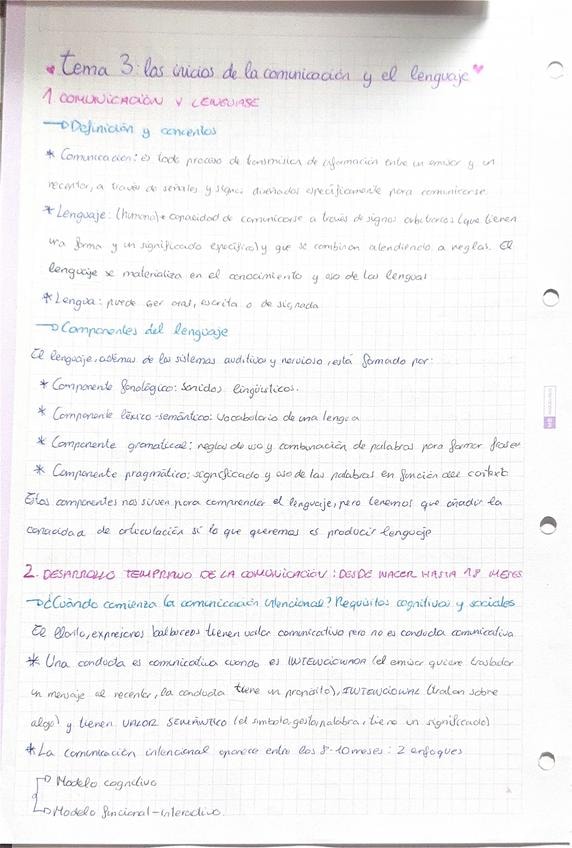 Tema 3: los inicios de la comunicación y el lenguaje
1. COMUNICACIÓN Y LENGUAJE
→ Definición y conceptos
* Comunicación: es todo proceso de transmisión de información entre un emisor y un
receptor, a través de señales y signos diseñados específicamente para comunicarse.
* Lenguaje: (humano) * capacidad de comunicarse a través de signos arbitrarios (que tienen
una forma y un significado específico) y que se combinan atendiendo a reglas. El
lenguaje se materializa en el conocimiento y uso de las lenguas
* Lengua: puede ser oral, escrita o de signada
→ Componentes del lenguaje
El lenguaje, además de los sistemas auditivo y nervioso, está formado por:
* Componente fonológico: sonidos lingüísticos.
* Componente léxico-semántico: vocabulario de una lengua
* Componente gramatical: reglas de uso y combinación de palabras para formar frases
* Componente pragmático: significado y uso de las palabras en función del contexto
Estos componentes nos sirven para comprender el lenguaje, pero tenemos que añadir la
capacidad de articulación si lo que queremos es producir lenguaje
2. DESARROLLO TEMPRANO DE LA COMUNICACIÓN: DESDE NACER HASTA 18 MESES
→ ¿Cuándo comienza la comunicación intencional? Requisitos cognitivos y sociales
El lloriq, expresiones balbuceos tienen valor comunicativo pero no es conducta comunicativa
* Una conducta es comunicativa cuando es INTENCIONADA (el emisor quiere trasladar
un mensaje al receptor, la conducta tiene un propósito), INTENCIONAL (tratan sobre
algo) y tienen VALOR SEMÁNTICO (el símbolo, gesto, palabra, tiene un significado)
* La comunicación intencional aparece entre los 8-10 meses: 2 enfoques
→ Modelo cognitivo
→ Modelo funcional-interactivo